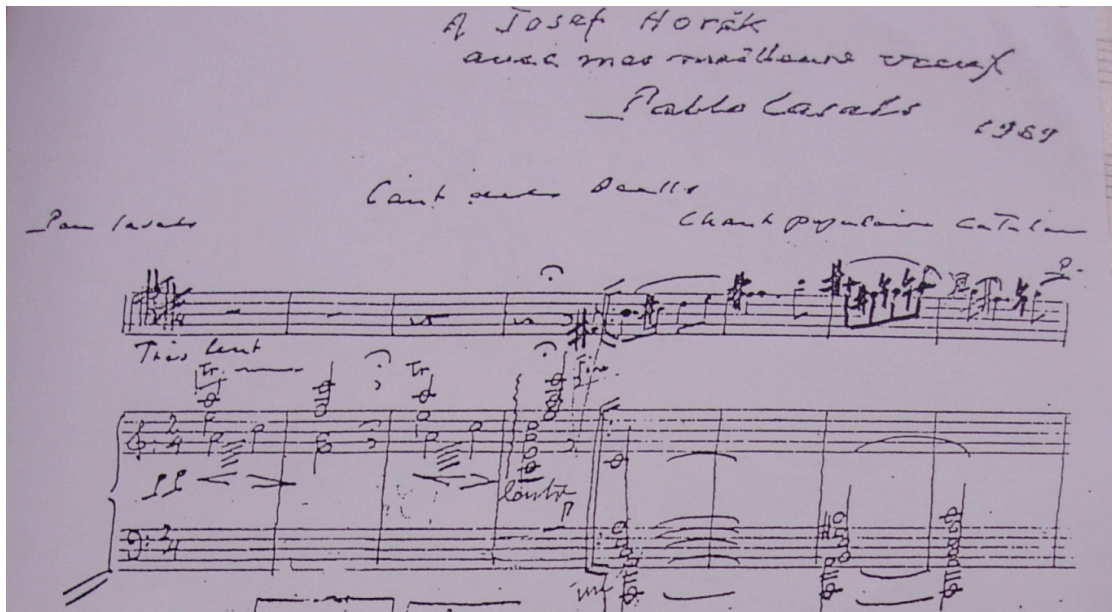 A Josef Horák
avec mes meilleurs vœux
Pablo Casals
1969
Cant dels Ocells
Pau Casals
Chant populaire Catalan
Très lent
Tr.
Tr
2/4
pp
lent
p
2/4